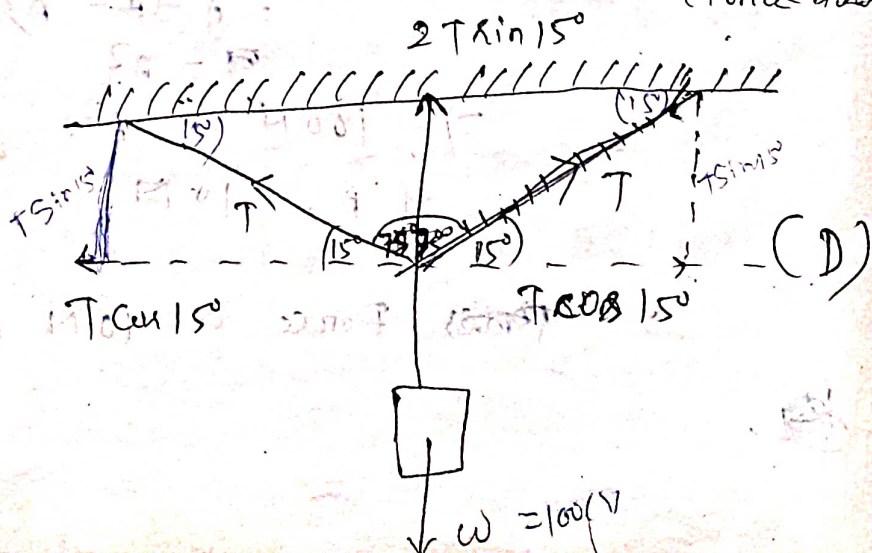 2 T sin 15°
15°) (15°)
T sin 15° T T T sin 15°
(15° 75° 15°) (D)
T cos 15° T cos 15°
W = 100 N